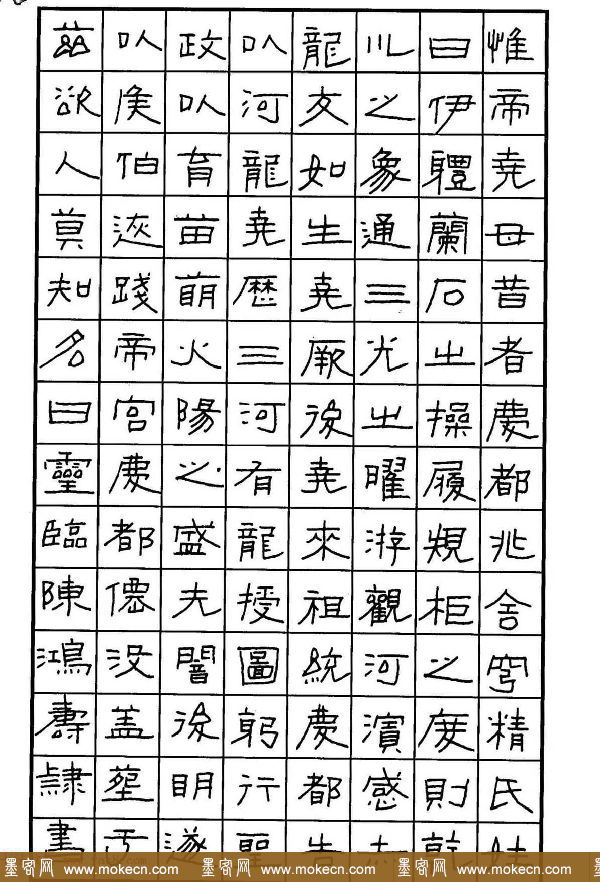 惟帝堯母昔者慶都兆舍穹精氏姓
曰伊體蘭石之操履規柜之度則乾
川之象通三光之曜游觀河濱感赤
龍交如生堯厥後堯來祖統慶都告
以河龍堯歷三河有龍授圖躬行聖
政以育苗萌火陽之盛夫闇後明遂
以侯伯踐帝宮慶都僊没蓋葬于
茲欲人莫知名曰靈臨陳鴻壽隸書
墨客网 www.mokecn.com 墨客网 www.mokecn.com 墨客网 www.mokecn.com